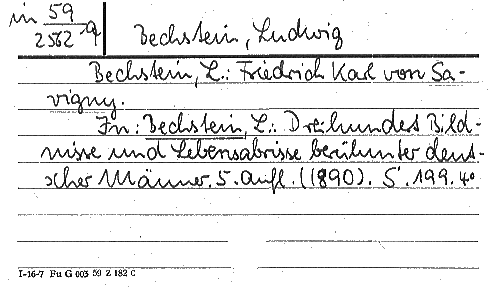 in 59
2562-9
Bechstein, Ludwig
Bechstein, L.: Friedrich Karl von Sa-
vigny.
In: Bechstein, L.: Dreihundert Bild-
nisse und Lebensabrisse berühmter deut-
scher Männer. 5. Aufl. ((1890). S. 199. 4°
I-16-7 Fu G 003 59 Z 182 C